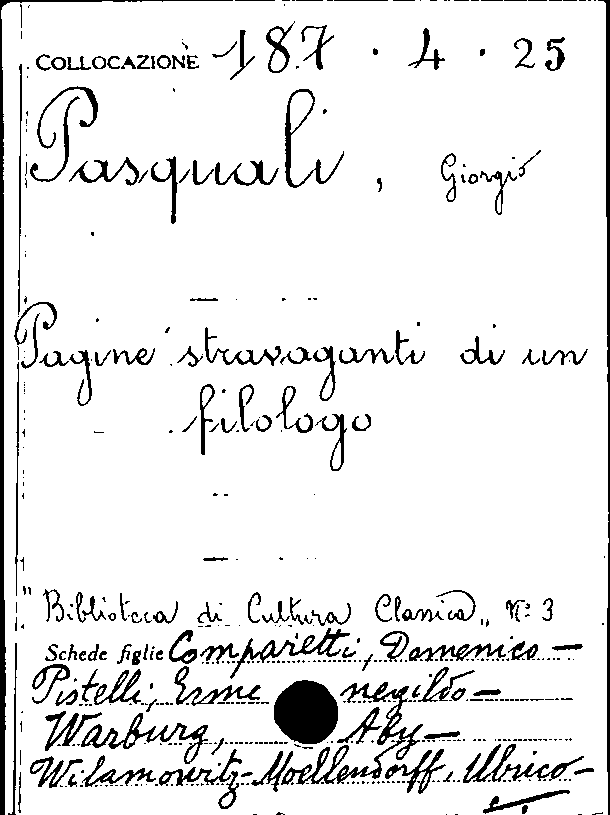 COLLOCAZIONE 187 · 4 · 25
Pasquali, Giorgio
Pagine stravaganti di un
filologo
"Biblioteca di Cultura Classica„ Nº 3
Schede figlie Comparetti, Domenico —
Pistelli, Erme negildo —
Warburg, Aby —
Wilamowitz-Moellendorff, Ulrico —